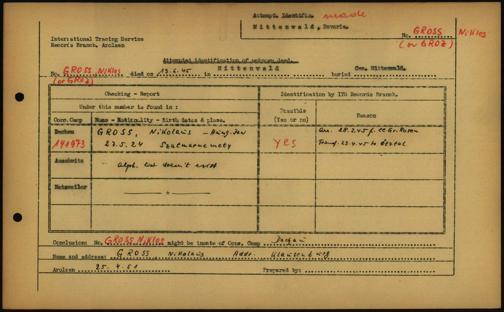 Attempt. Identific. made
Mittenwald, Bavaria.
No. GROSS Niklos
(or GROZ)
International Tracing Service
Records Branch, Arolsen
Attempted identification of unknown dead.
No. GROSS Niklos died on 13.6.45 in Mittenwald buried Cem. Mittenwald,
(or GROZ)
Checking - Report
Identification by ITS Records Branch.
Under this number is found in :
Possible
(Yes or no)
Reason
Conc.Camp
Name - Nationality - Birth dates & place.
Dachau
GROSS, Nikolaus - Hung. Jew
141973
27.5.24
YES
Arr. 28.2.45 f. CC Gr. Rosen
Transf. 23.4.45 to
Auschwitz
Alph. list doesn't exist
Natzweiler
- " -
Conclusion: No. GROSS Niklos might be inmate of Conc. Camp Dachau
Name and address: GROSS Nikolaus Addr. Klausenburg
Arolsen 25.4.51
Prepared by: